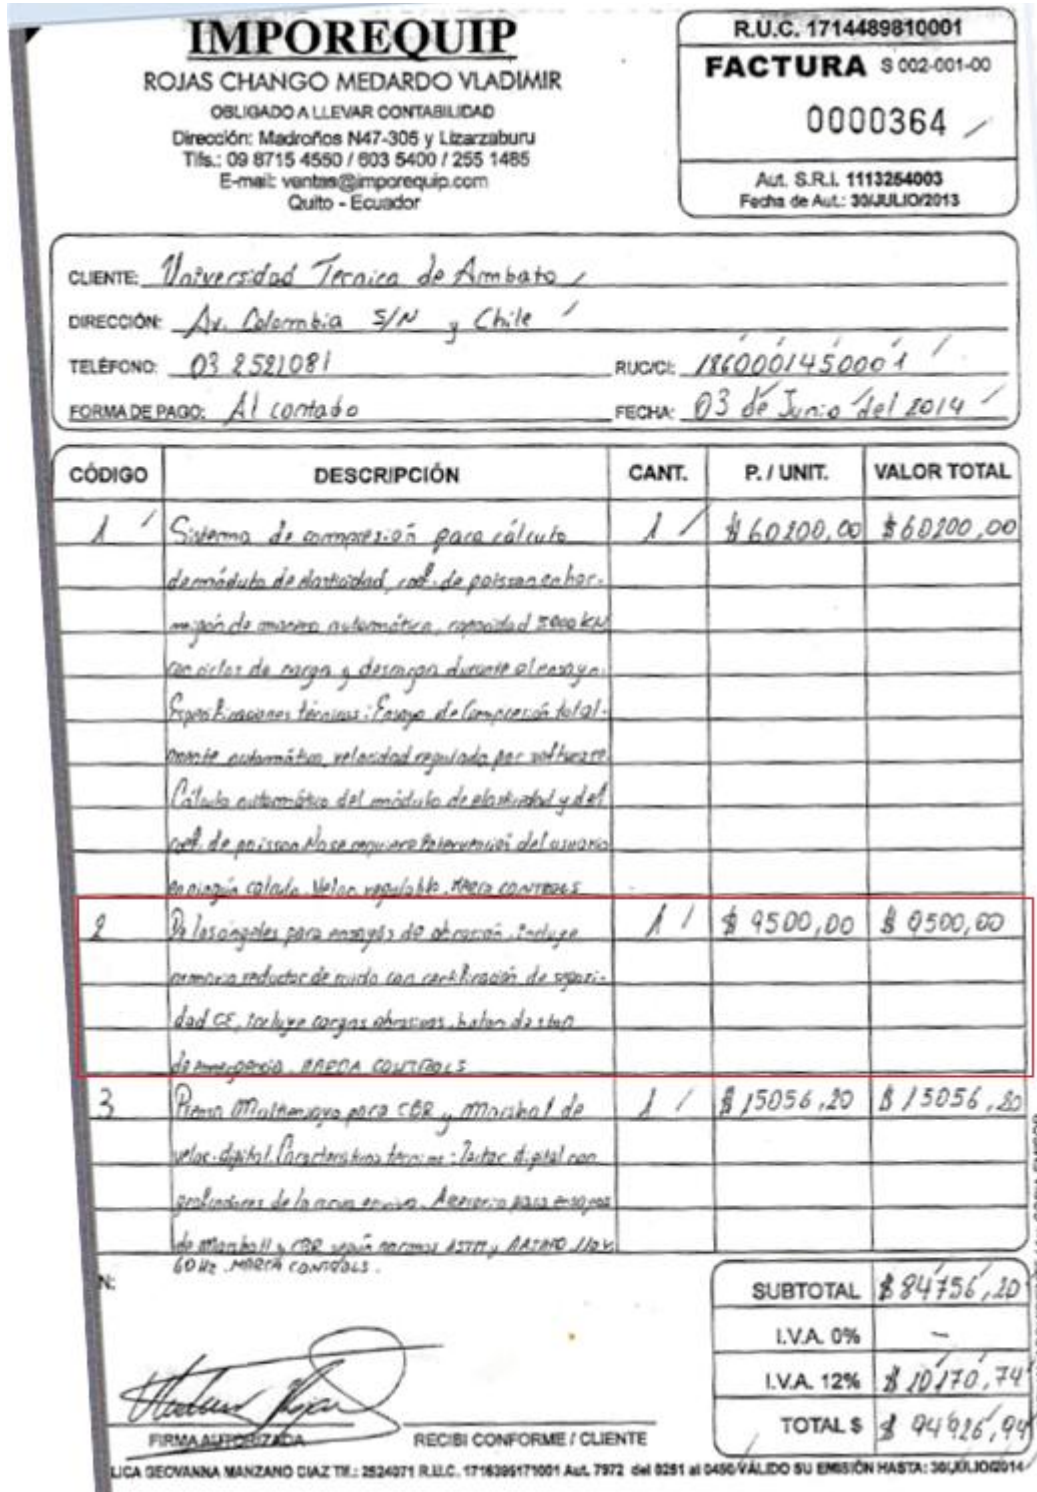 IMPOREQUIP
ROJAS CHANGO MEDARDO VLADIMIR
OBLIGADO A LLEVAR CONTABILIDAD
Dirección: Madroños N47-305 y Lizarzaburu
Tlfs.: 09 8715 4550 / 603 5400 / 255 1485
E-mail: ventas@imporequip.com
Quito - Ecuador
R.U.C. 1714489810001
FACTURA S 002-001-00
0000364
Aut. S.R.I. 1113254003
Fecha de Aut.: 30/JULIO/2013
CLIENTE: Universidad Tecnica de Ambato
DIRECCIÓN: Av. Colombia S/N y Chile
TELÉFONO: 03 2521081 RUC/CI: 1860001450001
FORMA DE PAGO: Al contado FECHA: 03 de Junio del 2014
CÓDIGO DESCRIPCIÓN CANT. P. / UNIT. VALOR TOTAL
1 Sistema de compresión para cálculo 1 $60200,00 $60200,00
de módulo de elasticidad, coef. de poisson en hor-
migón de manera automática, capacidad kN
con ciclos de carga y descarga durante el ensayo.
Especificaciones técnicas: Ensayo de Compresión total-
mente automático, velocidad regulada por software
Cálculo automático del módulo de elasticidad y del
coef. de poisson No se requiere intervención del usuario
en ningún calculo. regulable. MARCA CONTROLS
2 De los angeles para ensayos de abrasión. Incluye 1 $ 9500,00 $ 9500,00
armario reductor de ruido con certificación de seguri-
dad CE, Incluye cargas abrasivas, boton de stop
de emergencia. MARCA CONTROLS
3 Prensa Multiensayo para CBR y Marshal de 1 $15056,20 $15056,20
veloc. digital. Características técnicas: digital con
de la curva en vivo. Accesorio para ensayos
de Marshall y CBR según normas ASTM y AASHTO 110v.
60 Hz. MARCA CONTROLS.
N:
SUBTOTAL $84756,20
I.V.A. 0% -
I.V.A. 12% $10170,74
TOTAL $ $ 94926,94
FIRMA AUTORIZADA RECIBI CONFORME / CLIENTE
LICA GEOVANNA MANZANO DIAZ Tlf.: 2524071 R.U.C. 1716395171001 Aut. 7972 del 0251 al 0450 VÁLIDO SU EMISIÓN HASTA: 30/JULIO/2014